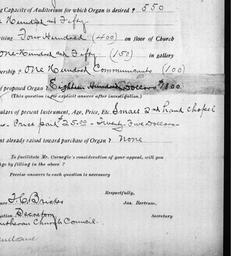 g Capacity of Auditorium for which Organ is desired ? 550
Hundred and Fifty
ising Four Hundred (400) on floor of Church
One Hundred and Fifty (150) in gallery
bership ? One Hundred Communicants (100)
f proposed Organ ? Eighteen Hundred Dollars $1800.
(This question is for explicit answer after investigation.)
ulars of present Instrument, Age, Price, Etc. Small 2nd hand chapel
Price paid 25.00 - Twenty Five Dollars
nt already raised toward purchase of Organ ? None
To facilitate Mr. Carnegie's consideration of your appeal, will you
ge by filling in the above ?
Precise answers to each question is necessary
Respectfully,
Jas. Bertram,
Secretary
utheran Church Council.